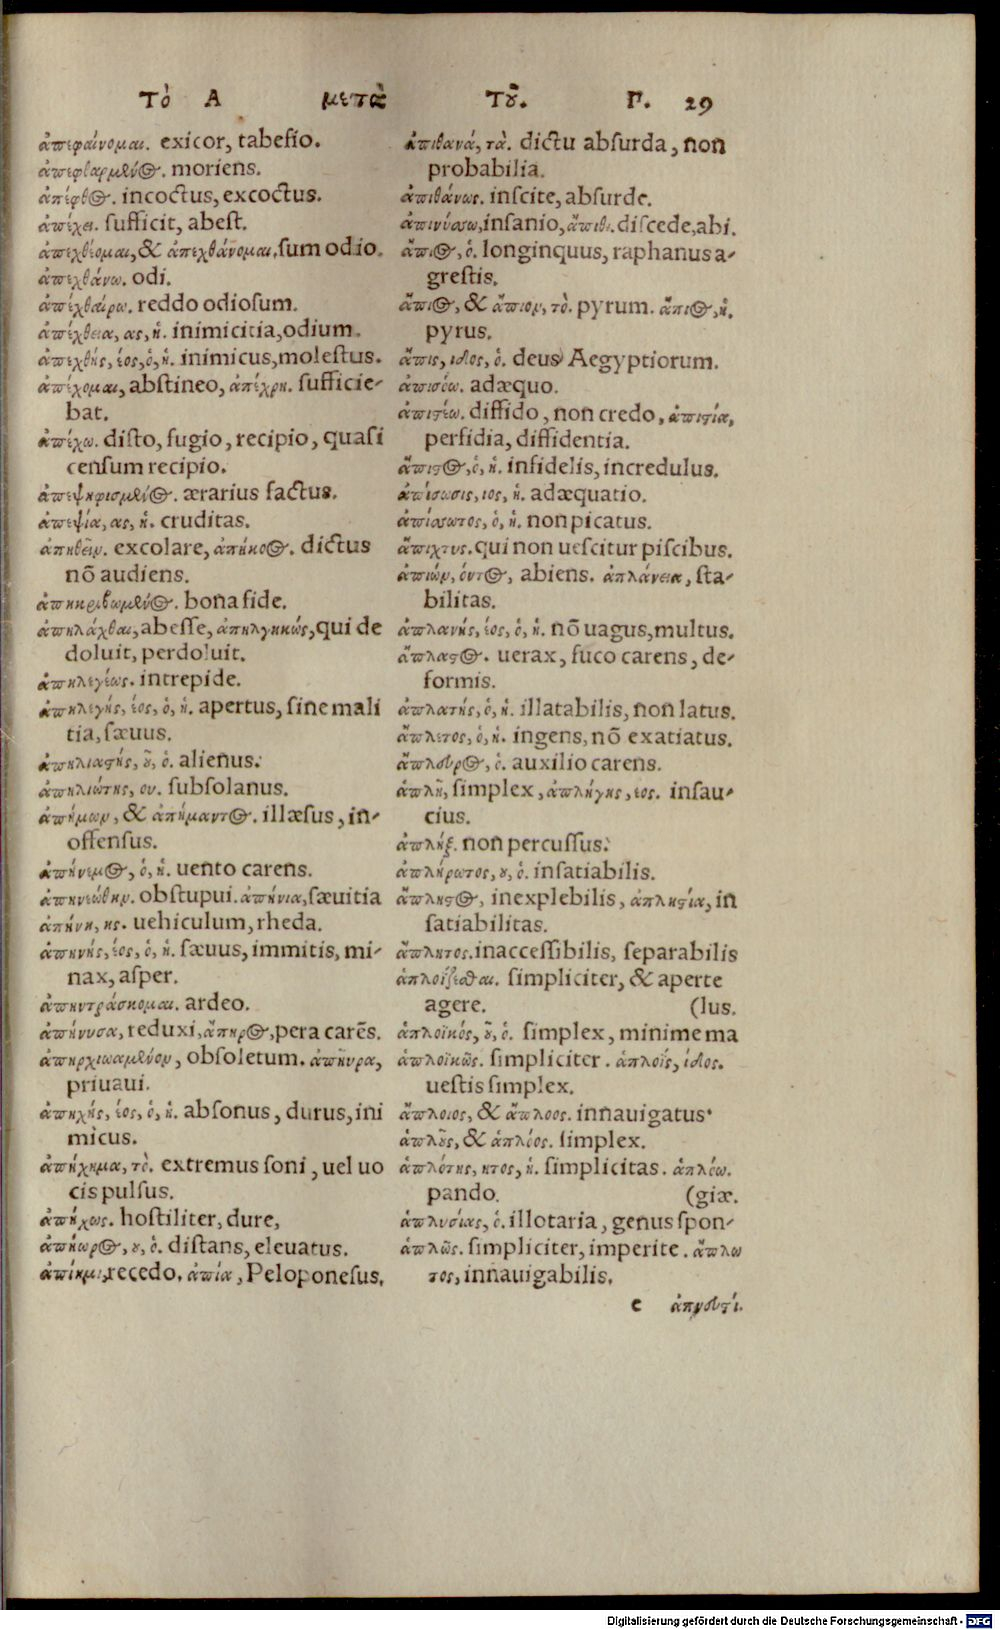 Τὸ Α μετὰ Τοῦ. Π. 29
ἀπεφαίνομαι. exicor, tabefio.
ἀπεφθαρμένος. moriens.
ἀπέφθος. incoctus, excoctus.
ἀπέχει. sufficit, abest.
ἀπεχθέομαι, & ἀπεχθάνομαι, sum odio.
ἀπεχθάνω. odi.
ἀπεχθαίρω. reddo odiosum.
ἀπέχθεια, ας, ἡ. inimicitia, odium.
ἀπεχθής, έος, ὁ, ἡ. inimicus, molestus.
ἀπέχομαι, abstineo, ἀπέχρη. sufficie-
bat.
ἀπέχω. disto, fugio, recipio, quasi
censum recipio.
ἀπεψηφισμένος. ærarius factus.
ἀπεψία, ας, ἡ. cruditas.
ἀπηθεῖν. excolare, ἀπήκοος. dictus
nō audiens.
ἀπηκριβωμένος. bona fide.
ἀπηλάχθαι, abesse, ἀπηλγηκώς, qui de
doluit, perdoluit.
ἀπηλεγέως. intrepide.
ἀπηλεγής, έος, ὁ, ἡ. apertus, sine mali
tia, sæuus.
ἀπηλιαστής, οῦ, ὁ. alienus.
ἀπηλιώτης, ου. subsolanus.
ἀπήμων, & ἀπήμαντος. illæsus, in-
offensus.
ἀπήνεμος, ὁ, ἡ. uento carens.
ἀπηνεώθην. obstupui. ἀπήνια, sæuitia
ἀπήνη, ης. uehiculum, rheda.
ἀπηνής, έος, ὁ, ἡ. sæuus, immitis, mi-
nax, asper.
ἀπηντράσκομαι. ardeo.
ἀπήνυσα, reduxi, ἄπηρος, pera carēs.
ἀπηρχαιωμένον, obsoletum. ἀπηύρα,
priuaui.
ἀπηχής, έος, ὁ, ἡ. absonus, durus, ini
micus.
ἀπήχημα, τὸ. extremus soni, uel uo
cis pulsus.
ἀπήχως. hostiliter, dure,
ἀπήωρος, ου, ὁ. distans, eleuatus.
ἀπίημι, recedo. ἀπία, Peloponesus.
ἀπιθανά, τὰ. dictu absurda, non
probabilia.
ἀπιθάνως. inscite, absurde.
ἀπινύσσω, insanio, ἄπιθι. discede, abi.
ἄπιος, ὁ. longinquus, raphanus a-
grestis.
ἄπιος, & ἄπιον, τὸ. pyrum. ἄπιος, ἡ.
pyrus.
ἄπις, ιδος, ὁ. deus Aegyptiorum.
ἀπισόω. adæquo.
ἀπιστέω. diffido, non credo, ἀπιστία,
perfidia, diffidentia.
ἄπιστος, ὁ, ἡ. infidelis, incredulus.
ἀπίσωσις, ιος, ἡ. adæquatio.
ἀπίσσωτος, ὁ, ἡ. non picatus.
ἄπιχτυς. qui non uescitur piscibus.
ἀπιών, όντος, abiens. ἀπλάνεια, sta-
bilitas.
ἀπλανής, έος, ὁ, ἡ. nō uagus, multus.
ἄπλαστος. uerax, fuco carens, de-
formis.
ἀπλατής, ὁ, ἡ. illatabilis, non latus.
ἄπλετος, ὁ, ἡ. ingens, nō exatiatus.
ἄπλευρος, ὁ. auxilio carens.
ἁπλῆ, simplex, ἀπλήγης, εος. insau-
cius.
ἀπλήξ. non percussus.
ἀπλήρωτος, ου, ὁ. insatiabilis.
ἄπληστος, inexplebilis, ἀπληστία, in
satiabilitas.
ἄπλητος. inaccessibilis, separabilis
ἁπλοΐζεσθαι. simpliciter, & aperte
agere. (lus.
ἁπλοϊκός, οῦ, ὁ. simplex, minime ma
ἁπλοϊκῶς. simpliciter. ἁπλοΐς, ίδος.
uestis simplex.
ἄπλοιος, & ἄπλοος. innauigatus
ἁπλοῦς, & ἁπλόος. simplex.
ἁπλότης, ητος, ἡ. simplicitas. ἁπλόω.
pando. (giæ.
ἀπλυσίας, ὁ. illotaria, genus spon-
ἁπλῶς. simpliciter, imperite. ἄπλω
τος, innauigabilis.
e ἀπνευστί.